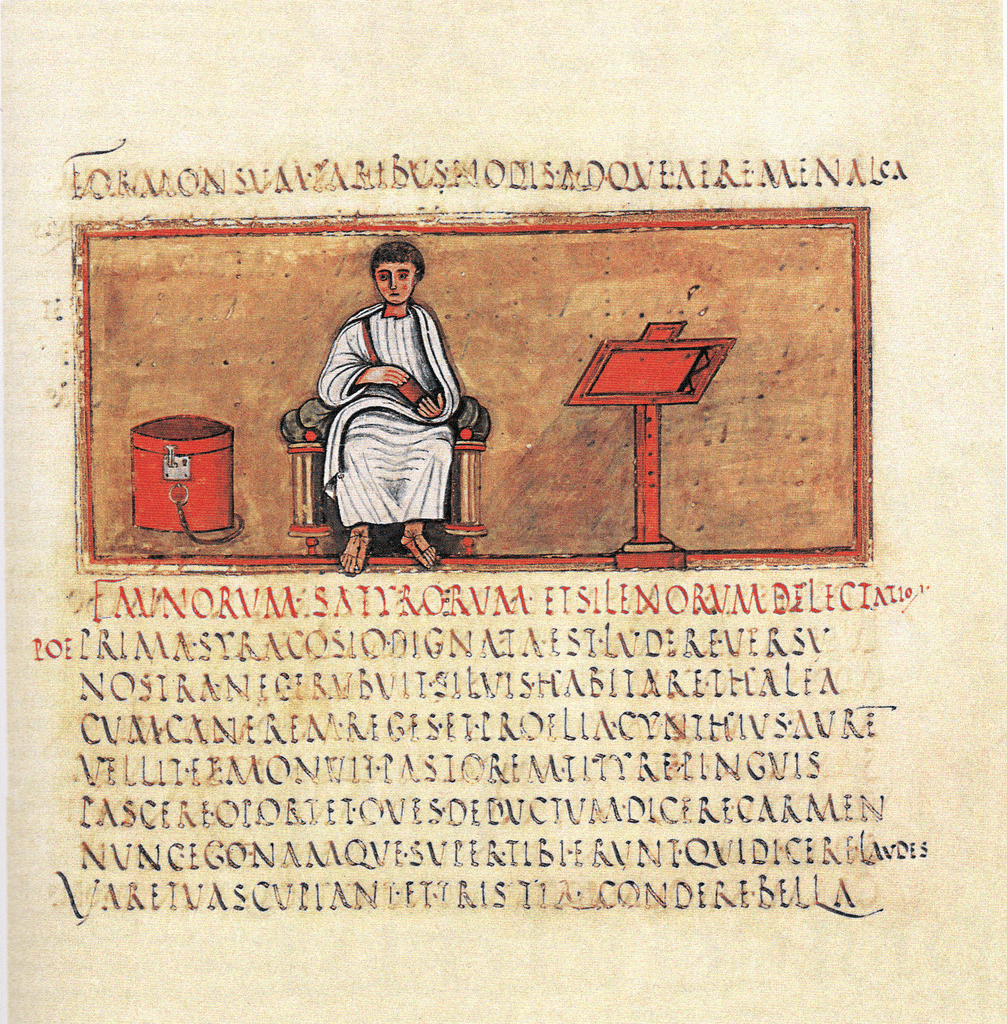 FORMONSVM·PARIBVS·NODIS·ADQVE·AERE·MENALCA
FAVNORVM·SATYRORVM·ET SILENORVM·DELECTATIO
POE PRIMA·SYRACOSIO·DIGNATA·EST·LVDERE·VERSV
NOSTRA·NEC·ERVBVIT·SILVIS·HABITARE·THALEA
CVM·CANEREM·REGES·ET·PROELIA·CYNTHIVS·AVRE
VELLIT·ET·ADMONVIT·PASTOREM·TITYRE·PINGVIS
PASCERE·OPORTET·OVES·DEDVCTVM·DICERE·CARMEN
NVNC·EGO·NAMQVE·SVPER·TIBI·ERVNT·QVI·DICERE·LAVDES
VARE·TVAS·CVPIANT·ET·TRISTIA·CONDERE·BELLA